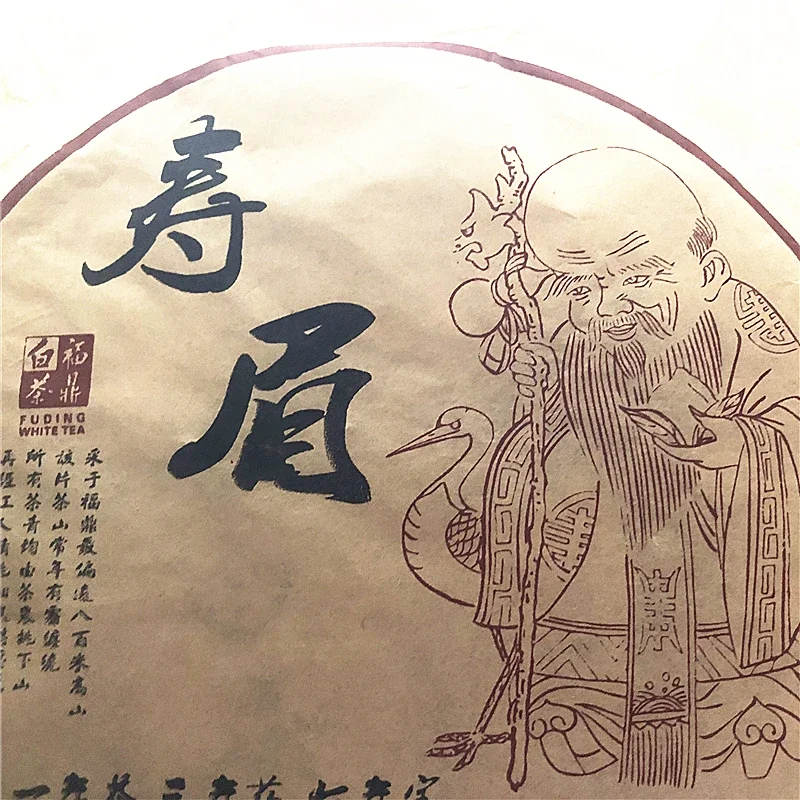 寿眉
福鼎
白茶
FUDING
WHITE TEA
采于福鼎最偏远八百米高山
该片茶山常年有雾缠绕
所有茶青均由茶农挑下山
再经工人精挑
一年茶 三年药 七年宝